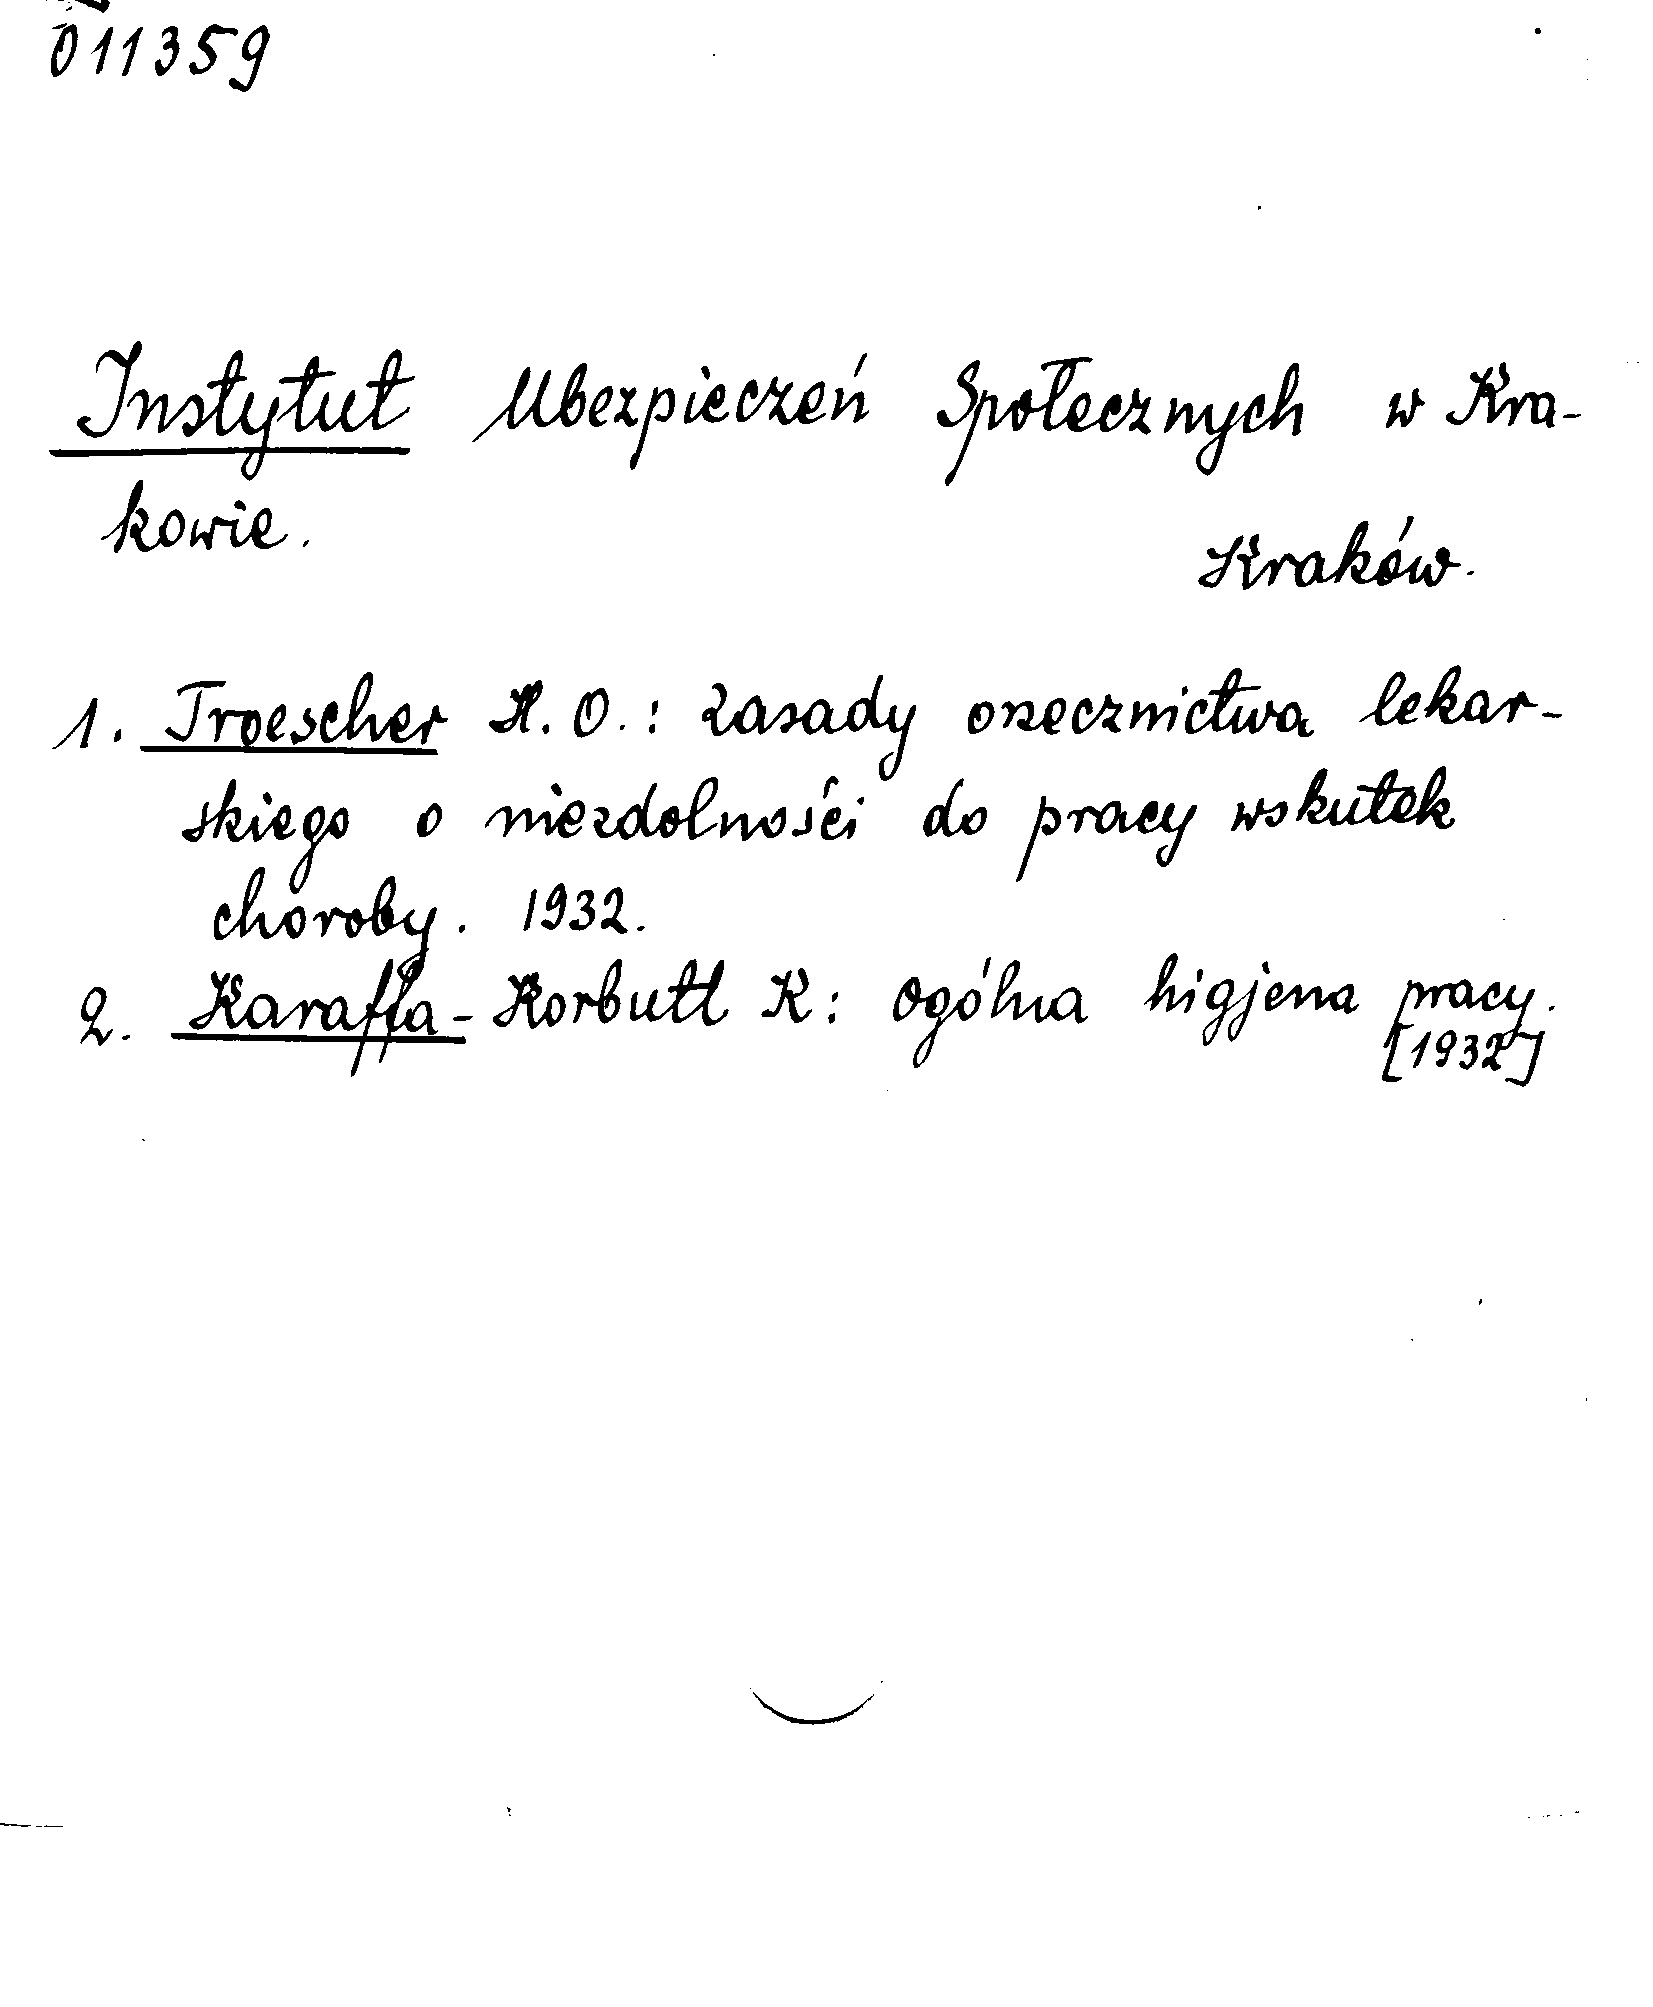 011359
Instytut Ubezpieczeń Społecznych w Kra-
kowie.
Kraków.
1. Troescher H. O.: Zasady orzecznictwa lekar-
skiego o niezdolności do pracy wskutek
choroby. 1932.
2. Karaffa-Korbutt K: Ogólna higjena pracy.
[1932]